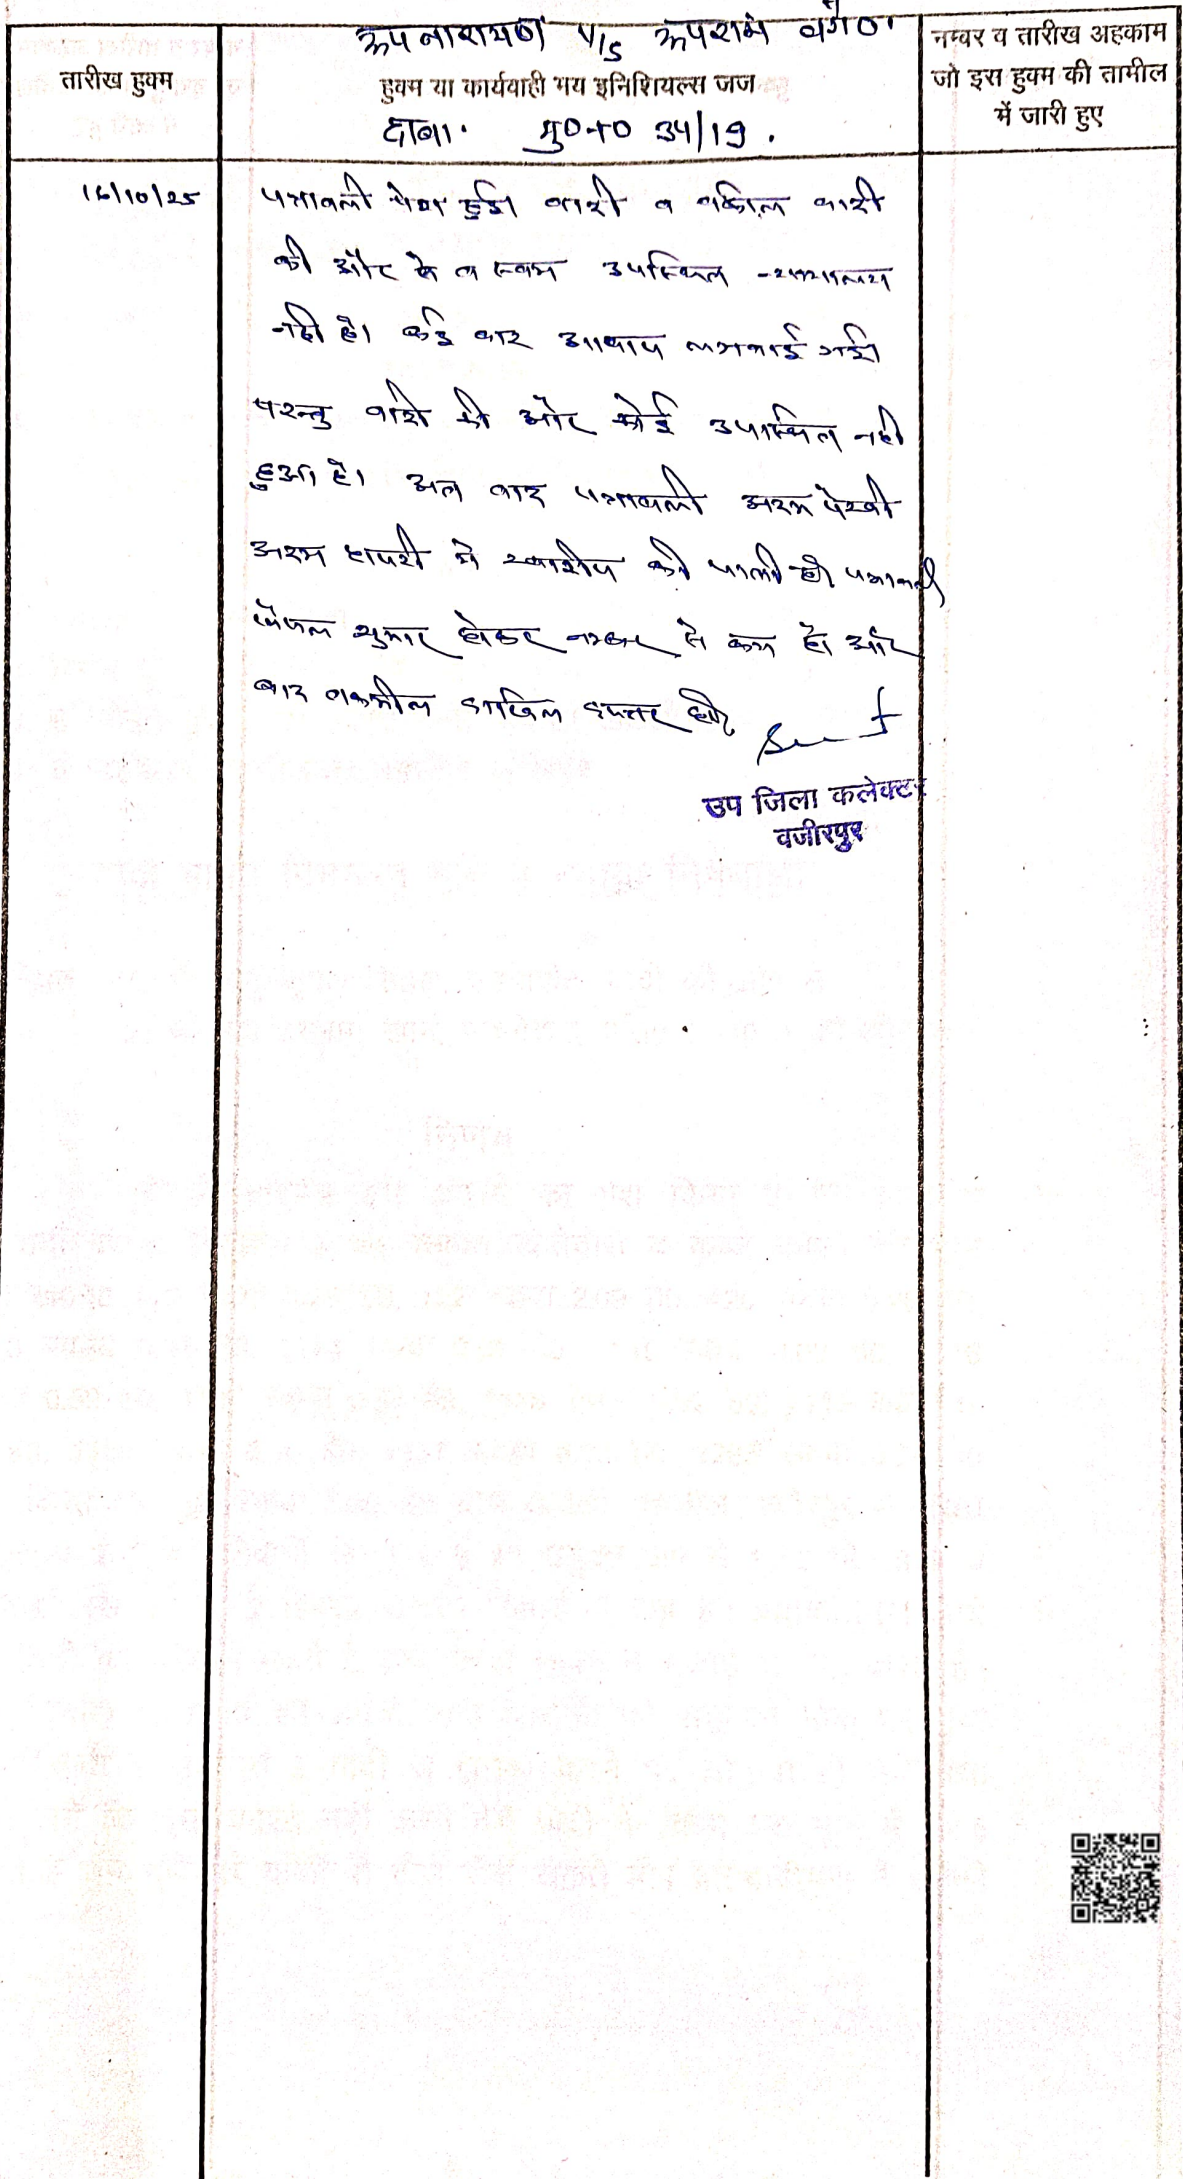 रूपनारायण V/S रूपराम वगै०
तारीख हुक्म
हुक्म या कार्यवाही मय इनिशियल्स जज
नम्बर व तारीख अहकाम
जो इस हुक्म की तामील
में जारी हुए
दावा. मु०न० 34/19.
16/10/25
पत्रावली पेश हुई। वादी व वकिल वादी
की और से व स्वयं उपस्थित न्यायालय
नही है। कई बार आवाज लगवाई गई।
परन्तु वादी की और कोई उपस्थित नही
हुआ है। अत वाद पत्रावली अदम पैरवी
अदम हाजरी मे खारीज की जाती है। पत्रावली
फैसल शुमार होकर नम्बर से कम हो और
बाद तकमील दाखिल दफ्तर हो।
उप जिला कलेक्टर
वजीरपुर